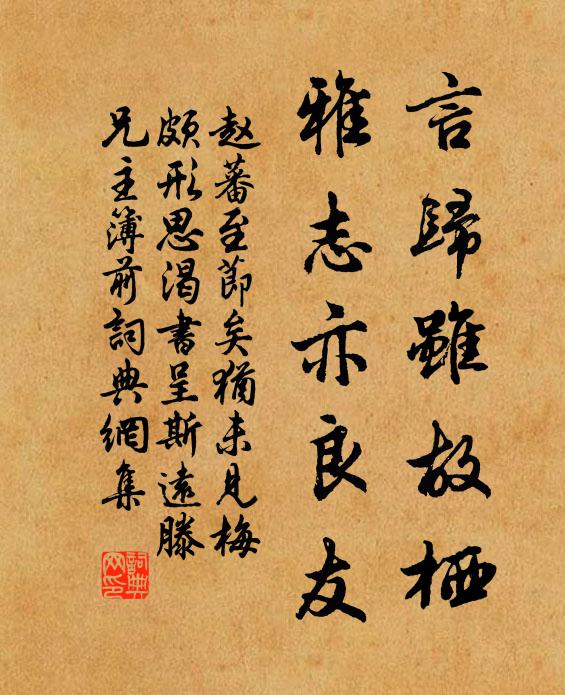 言歸雖故栖
雅志亦良友
赵蕃至節矣猶未見梅
頗形思渴書呈斯遠滕
兄主簿前詞典網集
詞典网印